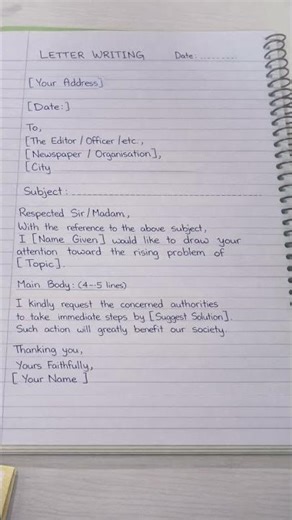 LETTER WRITING Date:.........
[Your Address]
[Date:]
To,
[The Editor / Officer / etc.,
[Newspaper / Organisation],
[City
Subject:..............................
Respected Sir/Madam,
With the reference to the above subject,
I [Name Given] would like to draw your
attention toward the rising problem of
[Topic].
Main Body: (4-5 lines)
I Kindly request the concerned authorities
to take immediate steps by [Suggest Solution].
Such action will greatly benefit our society.
Thanking you,
Yours Faithfully,
[ Your Name ]